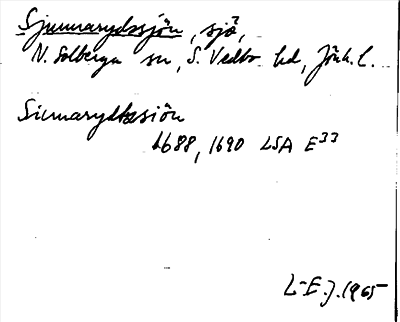 Sjunnarydssjön, sjö,
N. Solberga sn, S. Vedbo hd, Jönk. l.
Siunarydzsiön
1688, 1690 LSA E33
L-E.J. 1965